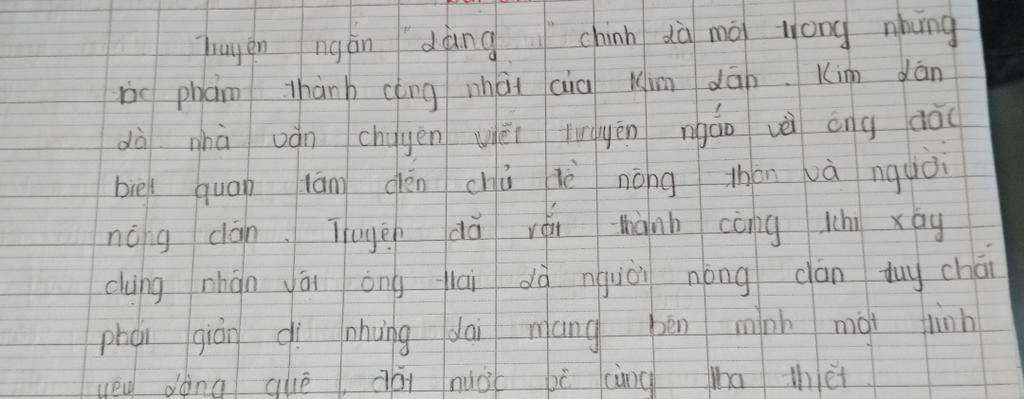 Truyện ngắn "Làng" chính là một trong những
tác phẩm thành công nhất của Kim Lân. Kim Lân
là nhà văn chuyên viết truyện ngắn về ông đặc
biệt quan tâm đến chủ đề nông thôn và người
nông dân. Truyện đã rất thành công khi xây
dựng nhân vật ông Hai là người nông dân tuy chất
phác giản dị nhưng lại mang bên mình một tình
yêu làng quê, đất nước vô cùng tha thiết.